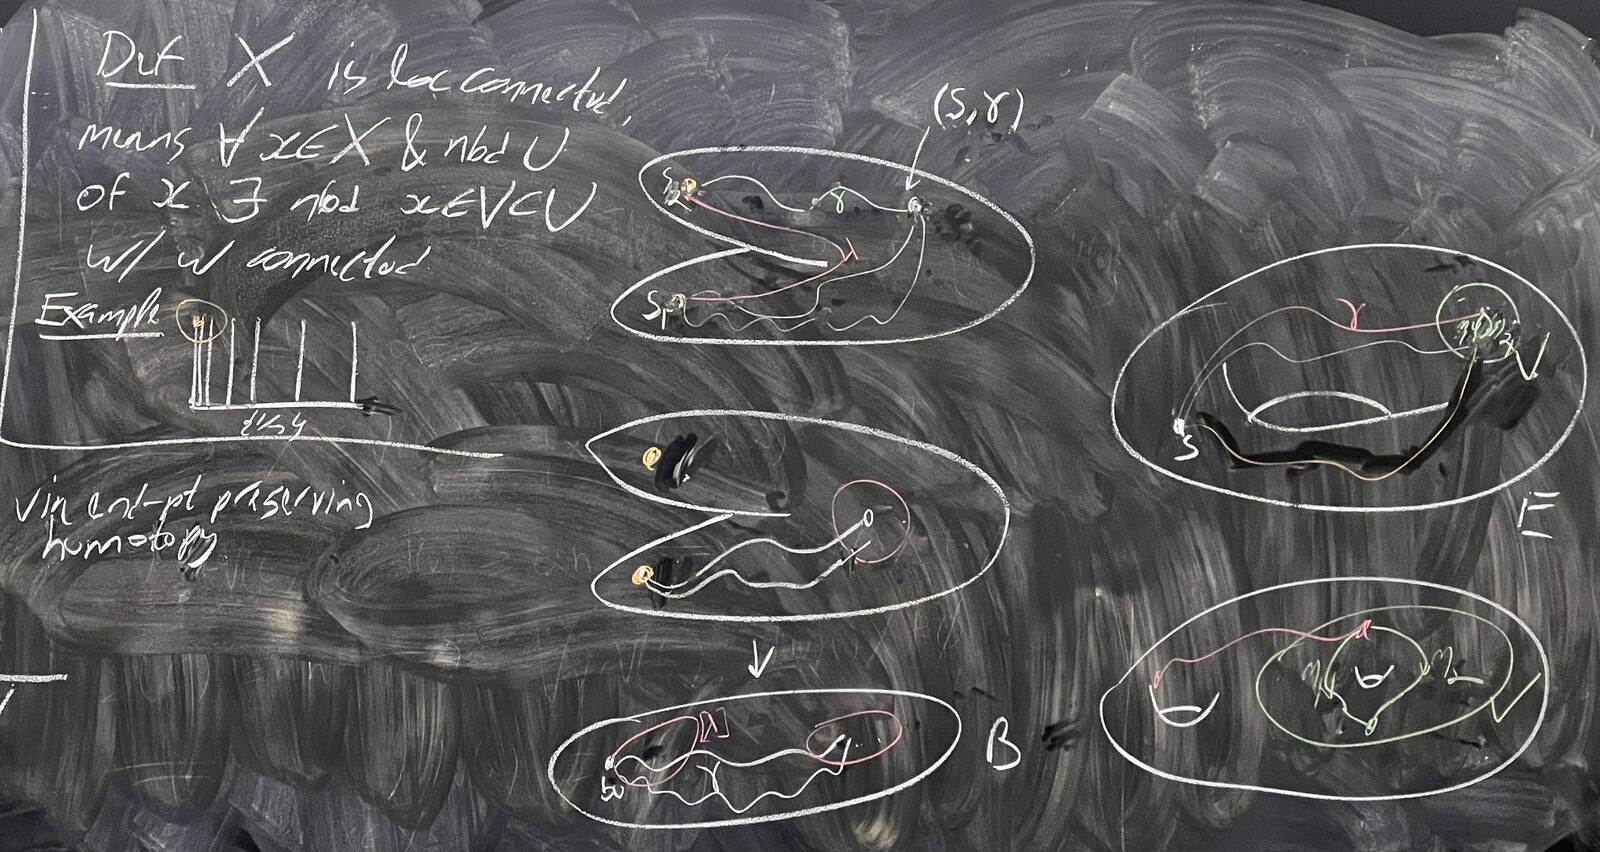 Def X is loc connected,
means ∀ x∈X & nbd U
of x ∃ nbd x∈V⊂U
w/ w connected.
Example
{1/n}
via end-pt preserving
homotopy
(s,γ)
s₂
γ
λ
s₁
[λ]
γ
b₀
B
γ
η₁
η₂
V
s
E
η₁
η₂
V